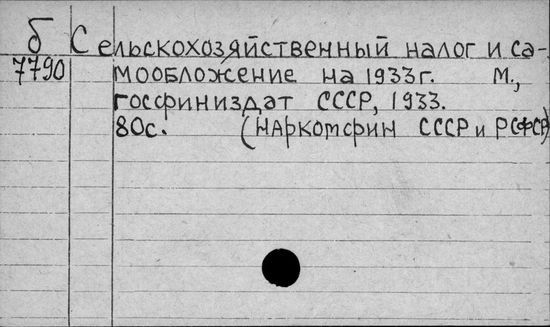 б Сельскохозяйственный налог и са-
7790 мообложение на 1933г. М.,
госфиниздат СССР, 1933.
80с. (Наркомфин СССР и РСФСР)